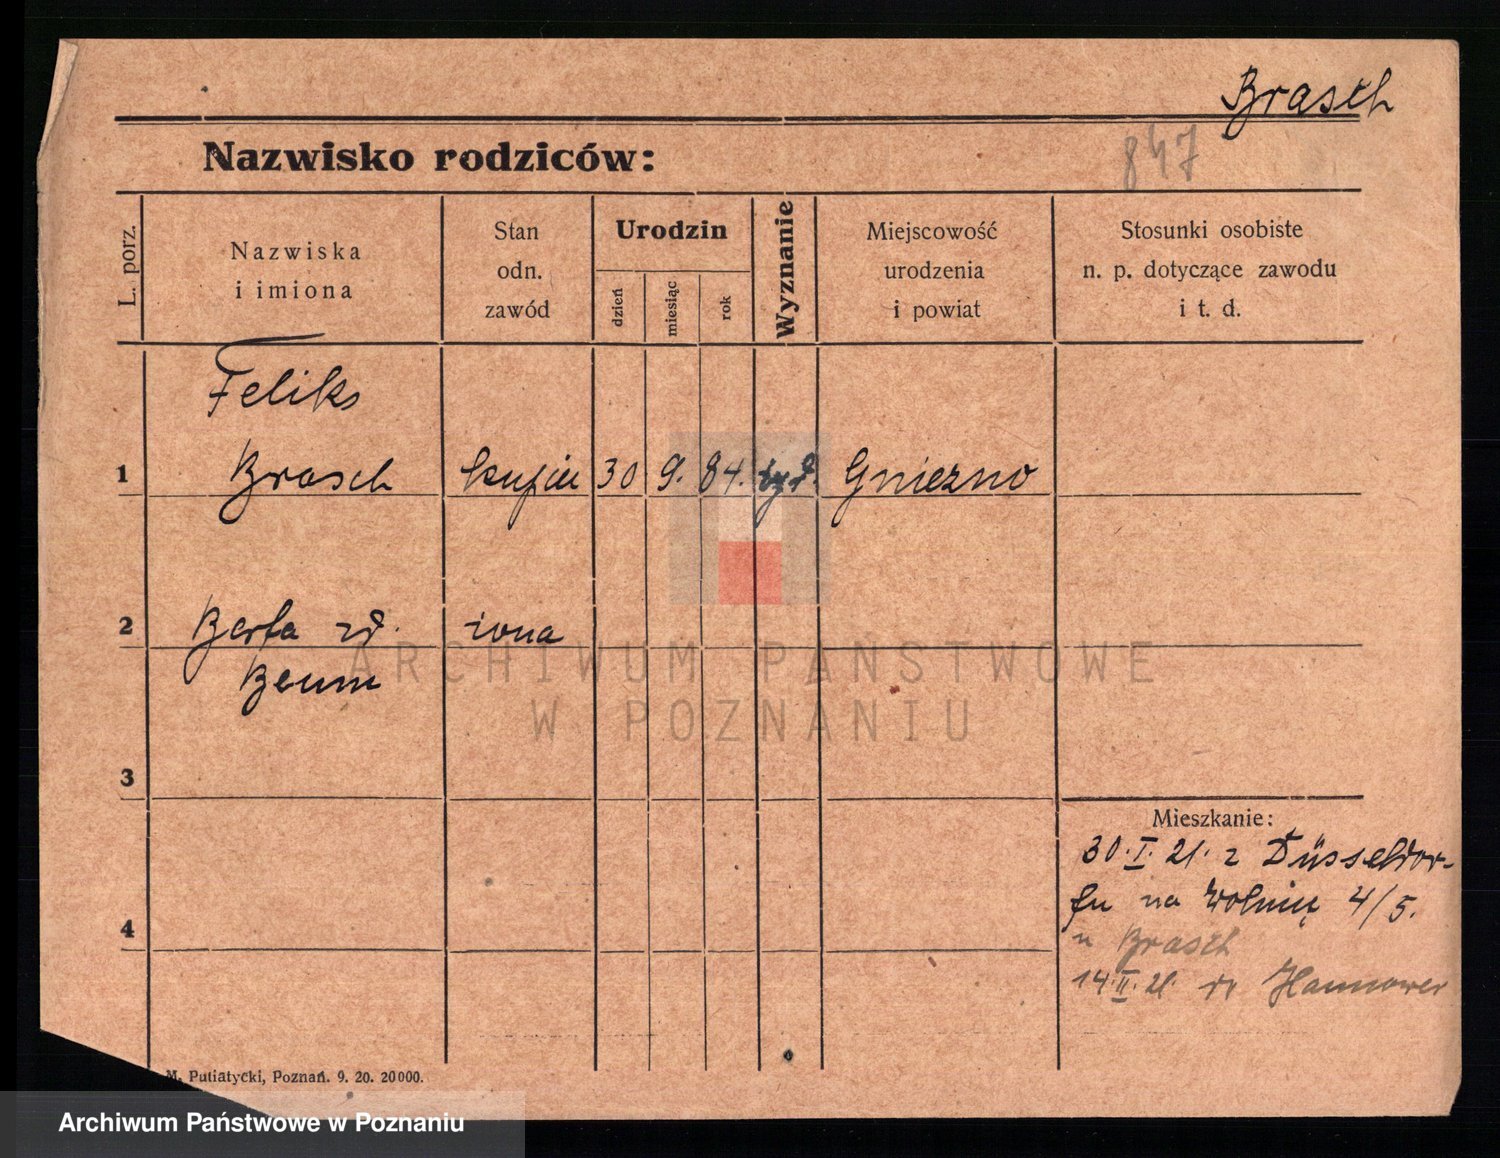 Brasch
847
Nazwisko rodziców:
L. porz.
Nazwiska
i imiona
Stan
odn.
zawód
Urodzin
dzień
miesiąc
rok
Wyznanie
Miejscowość
urodzenia
i powiat
Stosunki osobiste
n. p. dotyczące zawodu
i t. d.
Feliks
1 Brasch kupiec 30 9. 84. żyd. Gniezno
2 Berta zd. żona
3
Mieszkanie:
30.I.21. z Düsseldor-
fu na Wolnicę 4/5.
u Brasch
4
14.II.21. do Hannower
M. Putiatycki, Poznań. 9. 20. 20000.
ARCHIWUM PAŃSTWOWE
W POZNANIU
Archiwum Państwowe w Poznaniu